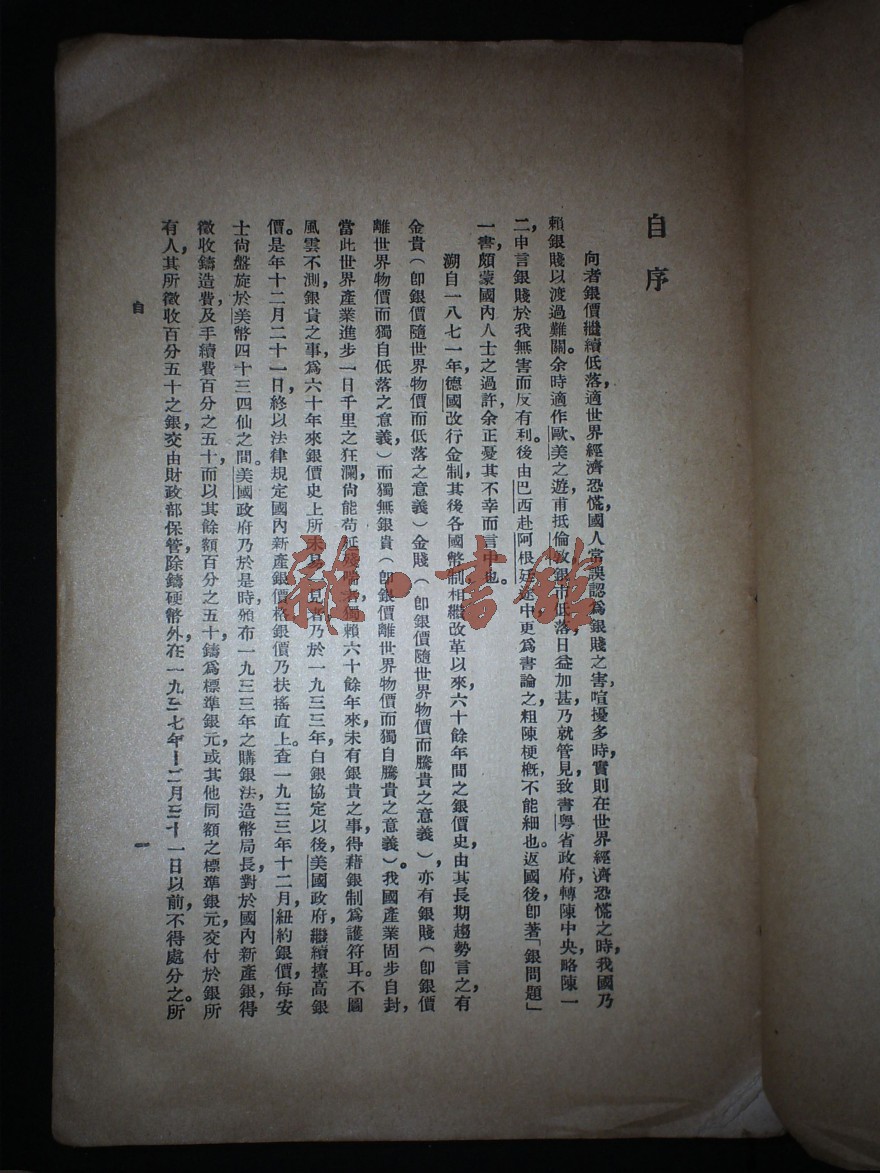 自序
向者銀價繼續低落，適世界經濟恐慌，國人嘗誤認爲銀賤之害，喧擾多時，實則在世界經濟恐慌之時，我國乃
賴銀賤以渡過難關。余時適作歐、美之遊，甫抵倫敦，銀市低落，日益加甚，乃就管見，致書粵省政府轉陳中央，略陳一
二，申言銀賤於我無害而反有利。後由巴西赴阿根廷途中，更爲書論之，粗陳梗概，不能細也。返國後，卽著「銀問題」
一書，頗蒙國內人士之過許，余正憂其不幸而言中也。
溯自一八七一年，德國改行金制，其後各國幣制相繼改革以來，六十餘年間之銀價史，由其長期趨勢言之，有
金貴（卽銀價隨世界物價而低落之意義）金賤（卽銀價隨世界物價而騰貴之意義），亦有銀賤（卽銀價
離世界物價而獨自低落之意義）而獨無銀貴（卽銀價離世界物價而獨自騰貴之意義）。我國產業固步自封，
當此世界產業進步一日千里之狂瀾，尙能苟延殘喘者，獨賴六十餘年來未有銀貴之事，得藉銀制爲護符耳。不圖
風雲不測，銀貴之事，爲六十年來銀價史上所未易一見者，乃於一九三三年白銀協定以後，美國政府繼續擡高銀
價。是年十二月二十一日，終以法律規定國內新產銀價格，銀價乃扶搖直上。查一九三三年十二月，紐約銀價，每安
士尙盤旋於美幣四十三四仙之間。美國政府乃於是時頒布一九三三年之購銀法，造幣局長對於國內新產銀，得
徵收鑄造費及手續費百分之五十，而以其餘額百分之五十，鑄爲標準銀元，或其他同額之標準銀元，交付於銀所
有人，其所徵收百分五十之銀，交由財政部保管，除鑄硬幣外，在一九三七年十二月三十一日以前，不得處分之。所
自
一
雜·書館